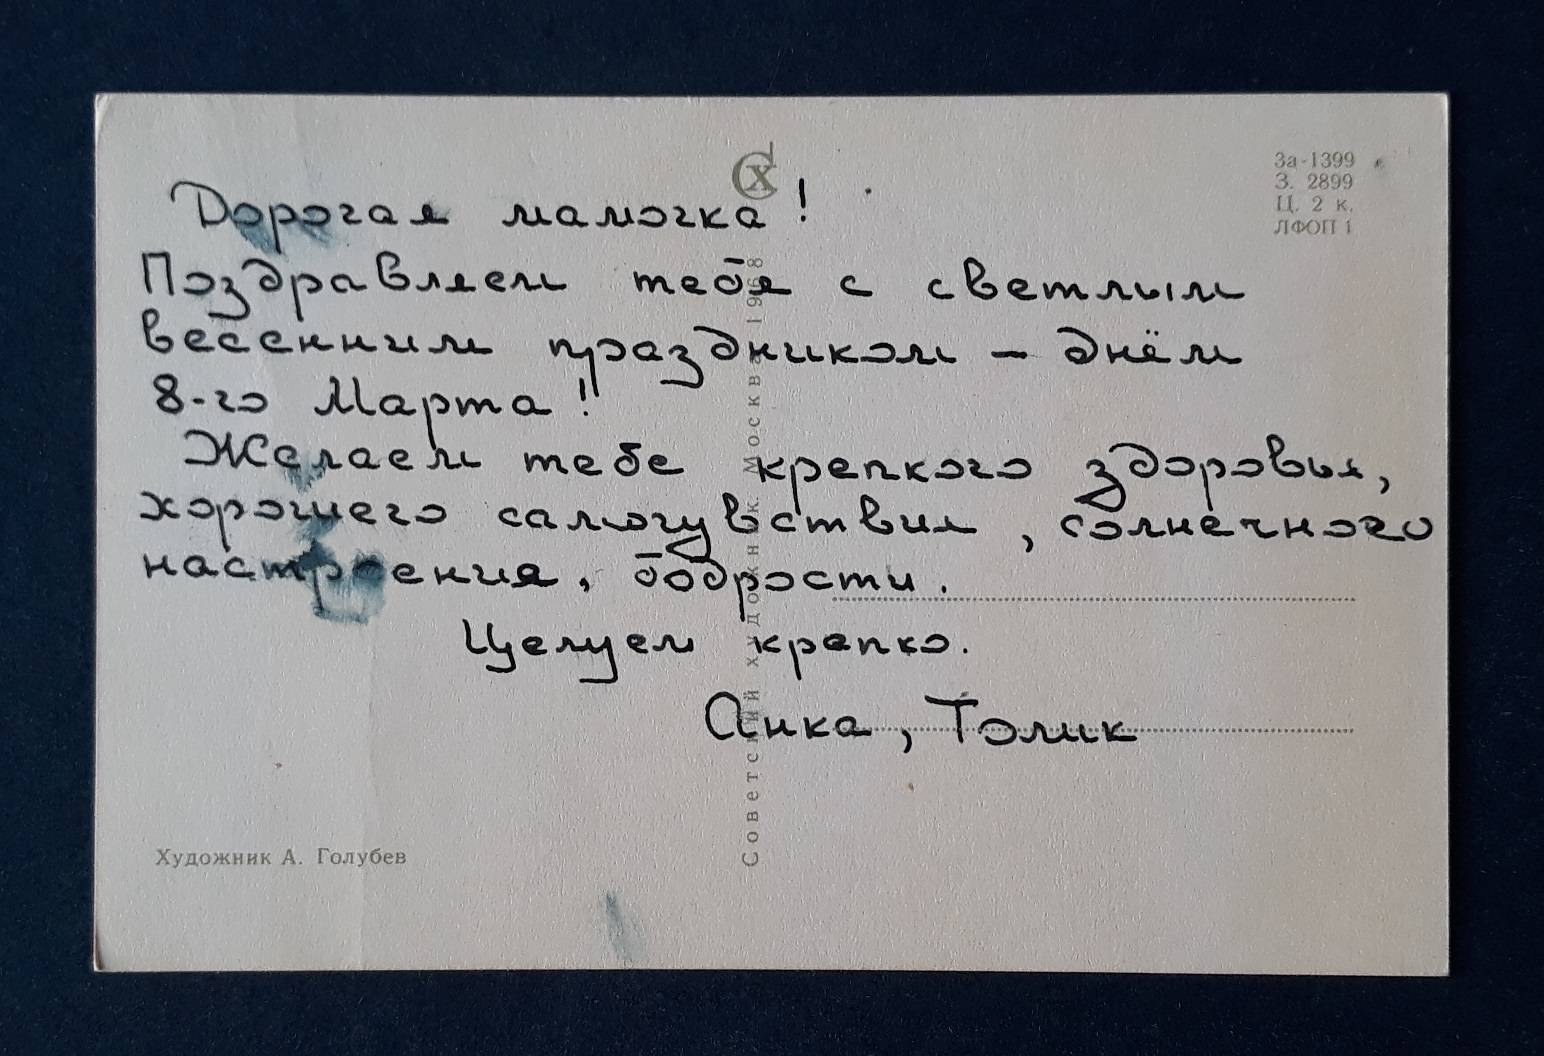 За-1399
З. 2899
Ц. 2 к.
ЛФОП 1
Дорогая мамочка!
Поздравляем тебя с светлым
весенним праздником – днём
8-го Марта!
Желаем тебе крепкого здоровья,
хорошего самочувствия, солнечного
настроения, бодрости.
Целуем крепко.
Анка, Толик
Советский художник. Москва 1968
Художник А. Голубев